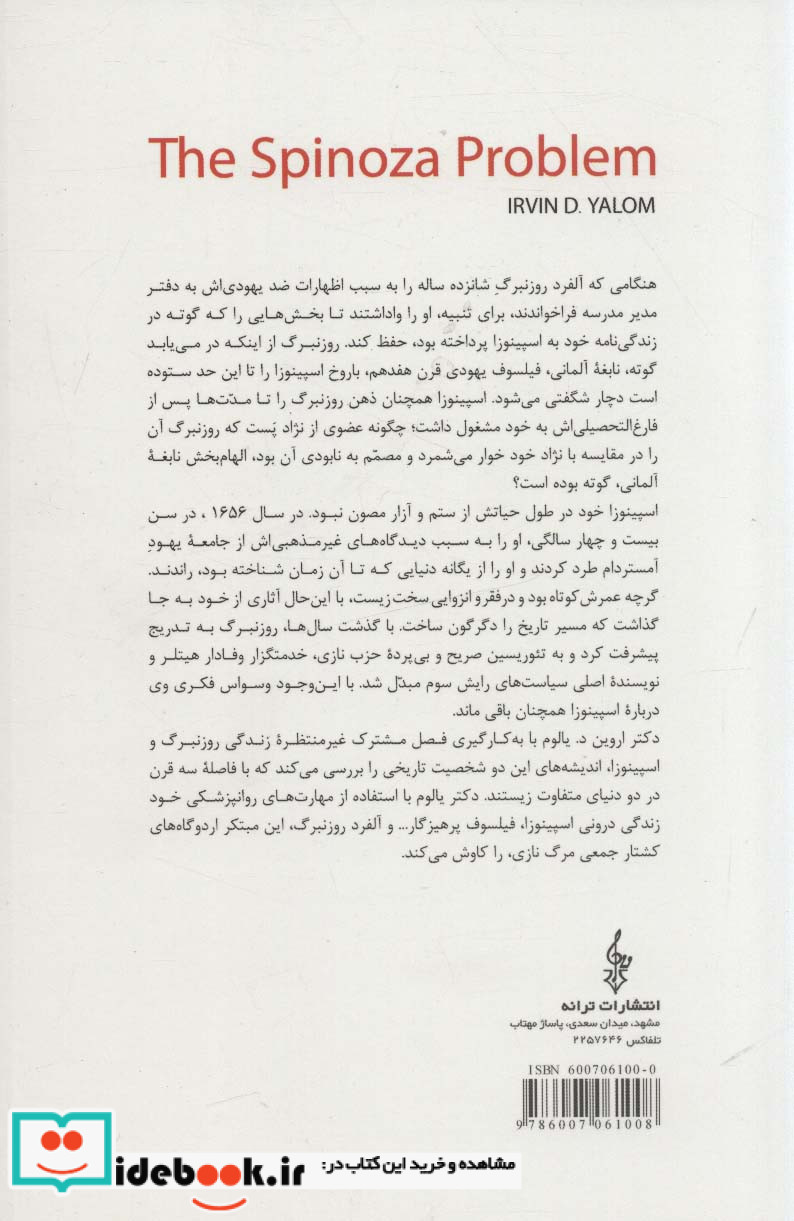 The Spinoza Problem
IRVIN D. YALOM
هنگامی که آلفرد روزنبرگِ شانزده ساله را به سبب اظهارات ضد یهودی‌اش به دفتر
مدیر مدرسه فراخواندند، برای تنبیه، او را واداشتند تا بخش‌هایی را که گوته در
زندگی‌نامه خود به اسپینوزا پرداخته بود، حفظ کند. روزنبرگ از اینکه در می‌یابد
گوته، نابغهٔ آلمانی، فیلسوف یهودی قرن هفدهم، باروخ اسپینوزا را تا این حد ستوده
است دچار شگفتی می‌شود. اسپینوزا همچنان ذهن روزنبرگ را تا مدّت‌ها پس از
فارغ‌التحصیلی‌اش به خود مشغول داشت؛ چگونه عضوی از نژاد پَست که روزنبرگ آن
را در مقایسه با نژاد خود خوار می‌شمرد و مصمّم به نابودی آن بود، الهام‌بخش نابغهٔ
آلمانی، گوته بوده است؟
اسپینوزا خود در طول حیاتش از ستم و آزار مصون نبود. در سال ۱۶۵۶ ، در سن
بیست و چهار سالگی، او را به سبب دیدگاه‌های غیرمذهبی‌اش از جامعهٔ یهودِ
آمستردام طرد کردند و او را از یگانه دنیایی که تا آن زمان شناخته بود، راندند.
گرچه عمرش کوتاه بود و در فقر و انزوایی سخت زیست، با این‌حال آثاری از خود به جا
گذاشت که مسیر تاریخ را دگرگون ساخت. با گذشت سال‌ها، روزنبرگ به تدریج
پیشرفت کرد و به تئوریسین صریح و بی‌پردهٔ حزب نازی، خدمتگزار وفادار هیتلر و
نویسندهٔ اصلی سیاست‌های رایش سوم مبدّل شد. با این‌وجود وسواس فکری وی
دربارهٔ اسپینوزا همچنان باقی ماند.
دکتر اروین د. یالوم با به‌کارگیری فصل مشترک غیرمنتظرهٔ زندگی روزنبرگ و
اسپینوزا، اندیشه‌های این دو شخصیت تاریخی را بررسی می‌کند که با فاصلهٔ سه قرن
در دو دنیای متفاوت زیستند. دکتر یالوم با استفاده از مهارت‌های روانپزشکی خود
زندگی درونی اسپینوزا، فیلسوف پرهیزگار... و آلفرد روزنبرگ، این مبتکر اردوگاه‌های
کشتار جمعی مرگ نازی، را کاوش می‌کند.
انتشارات ترانه
مشهد، میدان سعدی، پاساژ مهتاب
تلفاکس ۲۲۵۷۶۴۶
ISBN 600706100-0
9 786007 061008
idebook.ir
مشاهده و خرید این کتاب در: